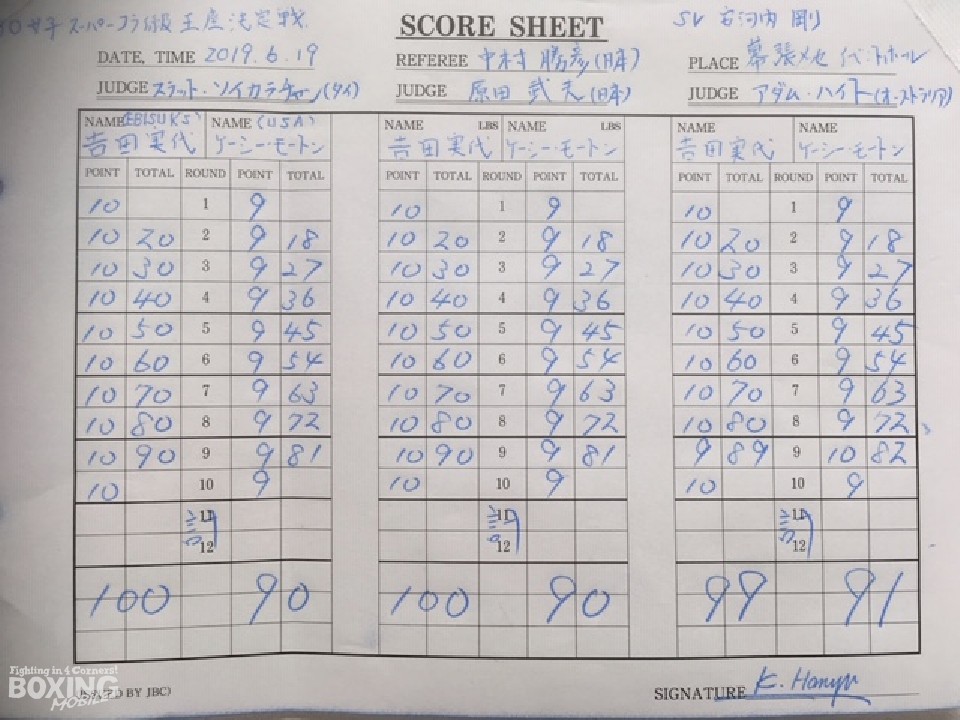 女子スーパーフライ級王座決定戦
SCORE SHEET
SV 石河内 剛
DATE, TIME 2019.6.19
REFEREE 中村 勝彦(日本)
PLACE 幕張メッセ
JUDGE スラット・ソイカラチャン(タイ)
JUDGE 原田 武夫(日本)
JUDGE アダム・ハイト(オーストラリア)
NAME (EBISU K'S) NAME (USA) NAME LBS NAME LBS NAME NAME
吉田実代 ケーシー・モートン 吉田実代 ケーシー・モートン 吉田実代 ケーシー・モートン
POINT TOTAL ROUND POINT TOTAL POINT TOTAL ROUND POINT TOTAL POINT TOTAL ROUND POINT TOTAL
10 1 9 10 1 9 10 1 9
10 20 2 9 18 10 20 2 9 18 10 20 2 9 18
10 30 3 9 27 10 30 3 9 27 10 30 3 9 27
10 40 4 9 36 10 40 4 9 36 10 40 4 9 36
10 50 5 9 45 10 50 5 9 45 10 50 5 9 45
10 60 6 9 54 10 60 6 9 54 10 60 6 9 54
10 70 7 9 63 10 70 7 9 63 10 70 7 9 63
10 80 8 9 72 10 80 8 9 72 10 80 8 9 72
10 90 9 9 81 10 90 9 9 81 9 89 9 10 82
10 10 9 10 10 9 10 10 9
11 11 11
12 12 12
100 90 100 90 99 91
Fighting in 4 Corners!
BOXING
MOBILE
ISSUED BY JBC)
SIGNATURE K. Hanyu